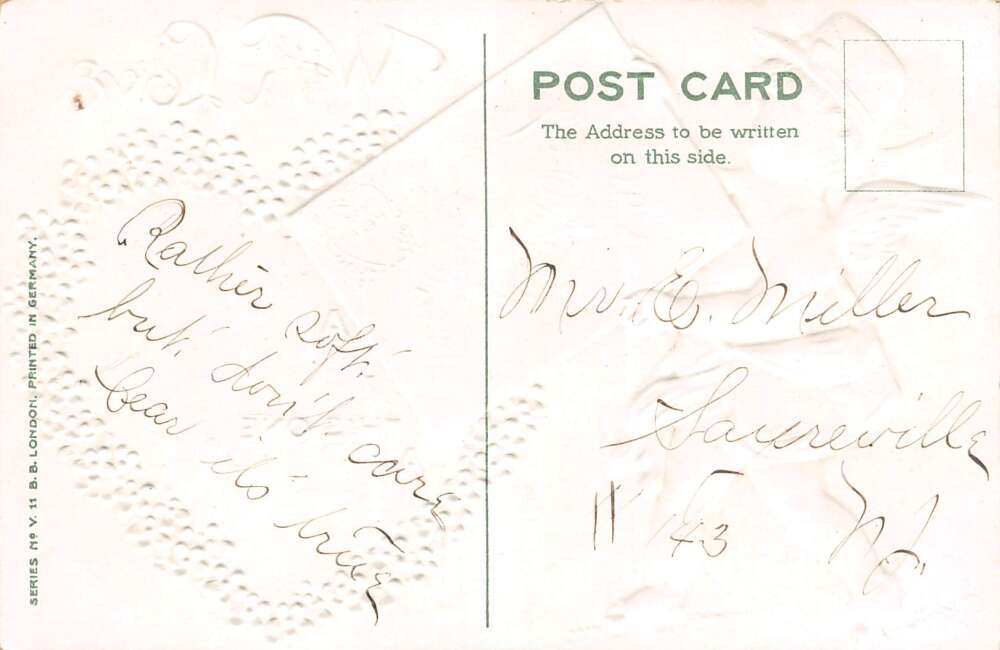 POST CARD
The Address to be written
on this side.
SERIES Nº V. 11 B.B. LONDON. PRINTED IN GERMANY.
Rather soft.
but don't care
Dear it's true
Mr. E. Miller
N.J.